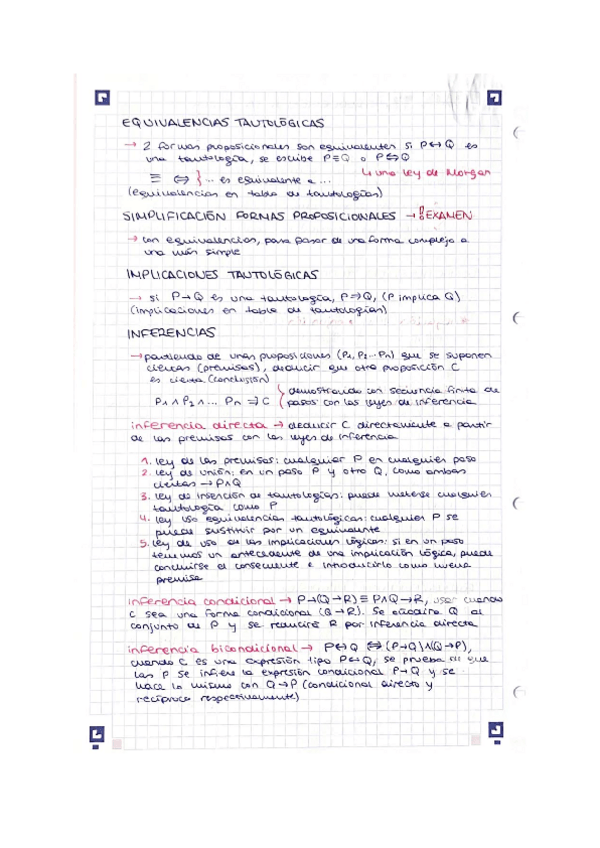 EQUIVALENCIAS TAUTOLÓGICAS
→ 2 formas proposicionales son equivalentes si P↔Q es
una tautología, se escribe P≡Q o P⇔Q
↳ una ley de Morgan
≡ ⇔ } … es equivalente a …
(equivalencias en tabla de tautologías)
SIMPLIFICACIÓN FORMAS PROPOSICIONALES → EXAMEN
→ con equivalencias, para pasar de una forma compleja a
una más simple
IMPLICACIONES TAUTOLÓGICAS
→ si P→Q es una tautología, P⇒Q, (P implica Q)
(implicaciones en tabla de tautologías)
INFERENCIAS
→ partiendo de unas proposiciones (P1, P2... Pn) que se suponen
ciertas (premisas), deducir que otra proposición C
es cierta (conclusión)
P1 ∧ P2 ∧ ... Pn ⇒ C { demostrando con secuencia finita de
pasos con las leyes de inferencia
inferencia directa → deducir C directamente a partir
de las premisas con las leyes de inferencia
1. ley de las premisas: cualquier P en cualquier paso
2. ley de unión: en un paso P y otro Q, como ambas
ciertas → P∧Q
3. ley de inserción de tautologías: puede meterse cualquier
tautología como P
4. ley uso equivalencias tautológicas: cualquier P se
puede sustituir por un equivalente
5. ley de uso de las implicaciones lógicas: si en un paso
tenemos un antecedente de una implicación lógica, puede
concluirse el consecuente e introducirlo como nueva
premisa
inferencia condicional → P→(Q→R) ≡ P∧Q→R, usar cuando
C sea una forma condicional (Q→R). Se añadirá Q al
conjunto de P y se deducirá R por inferencia directa
inferencia bicondicional → P↔Q ⇔ (P→Q)∧(Q→P),
cuando C es una expresión tipo P↔Q, se prueba que
las P se infiere la expresión condicional P→Q y se
hace lo mismo con Q→P (condicional directo y
recíproco respectivamente)